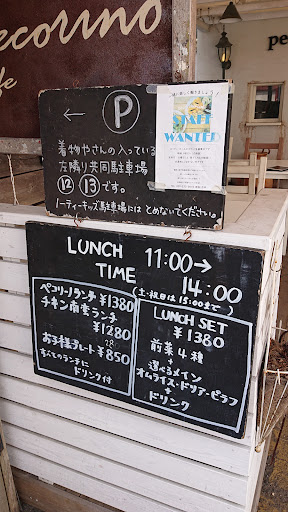 ecorino
fe
pe
← Ⓟ
着物やさんの入っている
左隣り共同駐車場
⑫ ⑬ です。
ノーティーキッズ駐車場には とめないでください。
STAFF
WANTED
LUNCH 11:00→
TIME 14:00
(土・祝日は15:00まで)
ペコリーノランチ ¥1380
チキン南蛮ランチ
¥1280
お子様プレート ¥850
すべてのランチに
ドリンク付
LUNCH SET
¥1380
前菜4種
選べるメイン
オムライス・ドリア・ピラフ
+
ドリンク